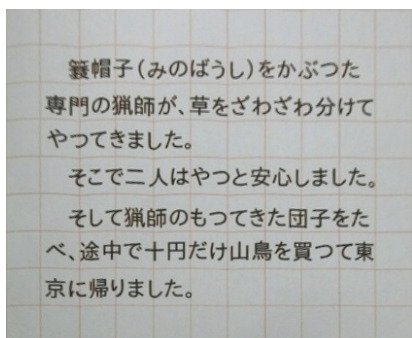 簔帽子(みのぼうし)をかぶつた
専門の猟師が、草をざわざわ分けて
やつてきました。
そこで二人はやつと安心しました。
そして猟師のもつてきた団子をた
べ、途中で十円だけ山鳥を買つて東
京に帰りました。